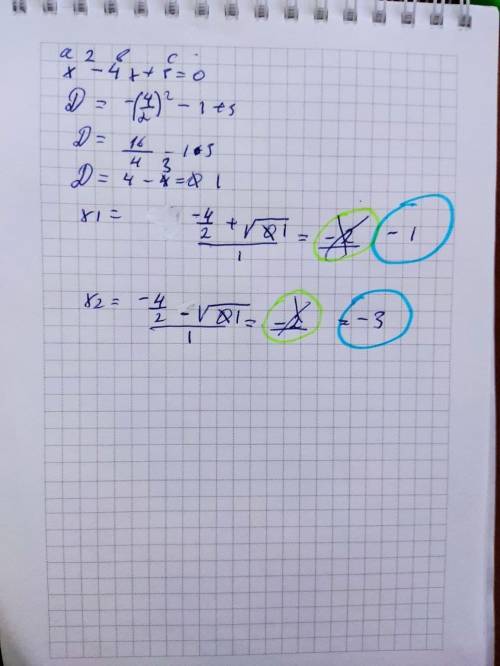 a 2 b c
x - 4x + 5 = 0
D = -(4/2)² - 1 + 5
D = 16/4 - 1·5
D = 4 - 3 = 1
x1 = (-4/2 + √1)/1 = -2 - 1
x2 = (-4/2 - √1)/1 = -2 = -3